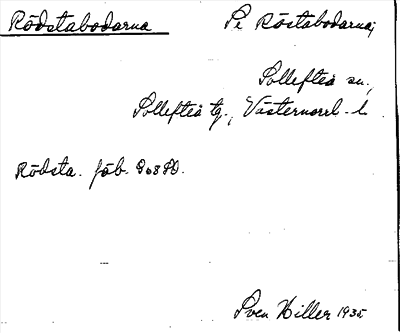 Rödstabodarna På Röstabodarna;
Sollefteå sn.,
Sollefteå tg., Västernorrl. l.
Rödsta. fäb.
Sven Hiller 1935